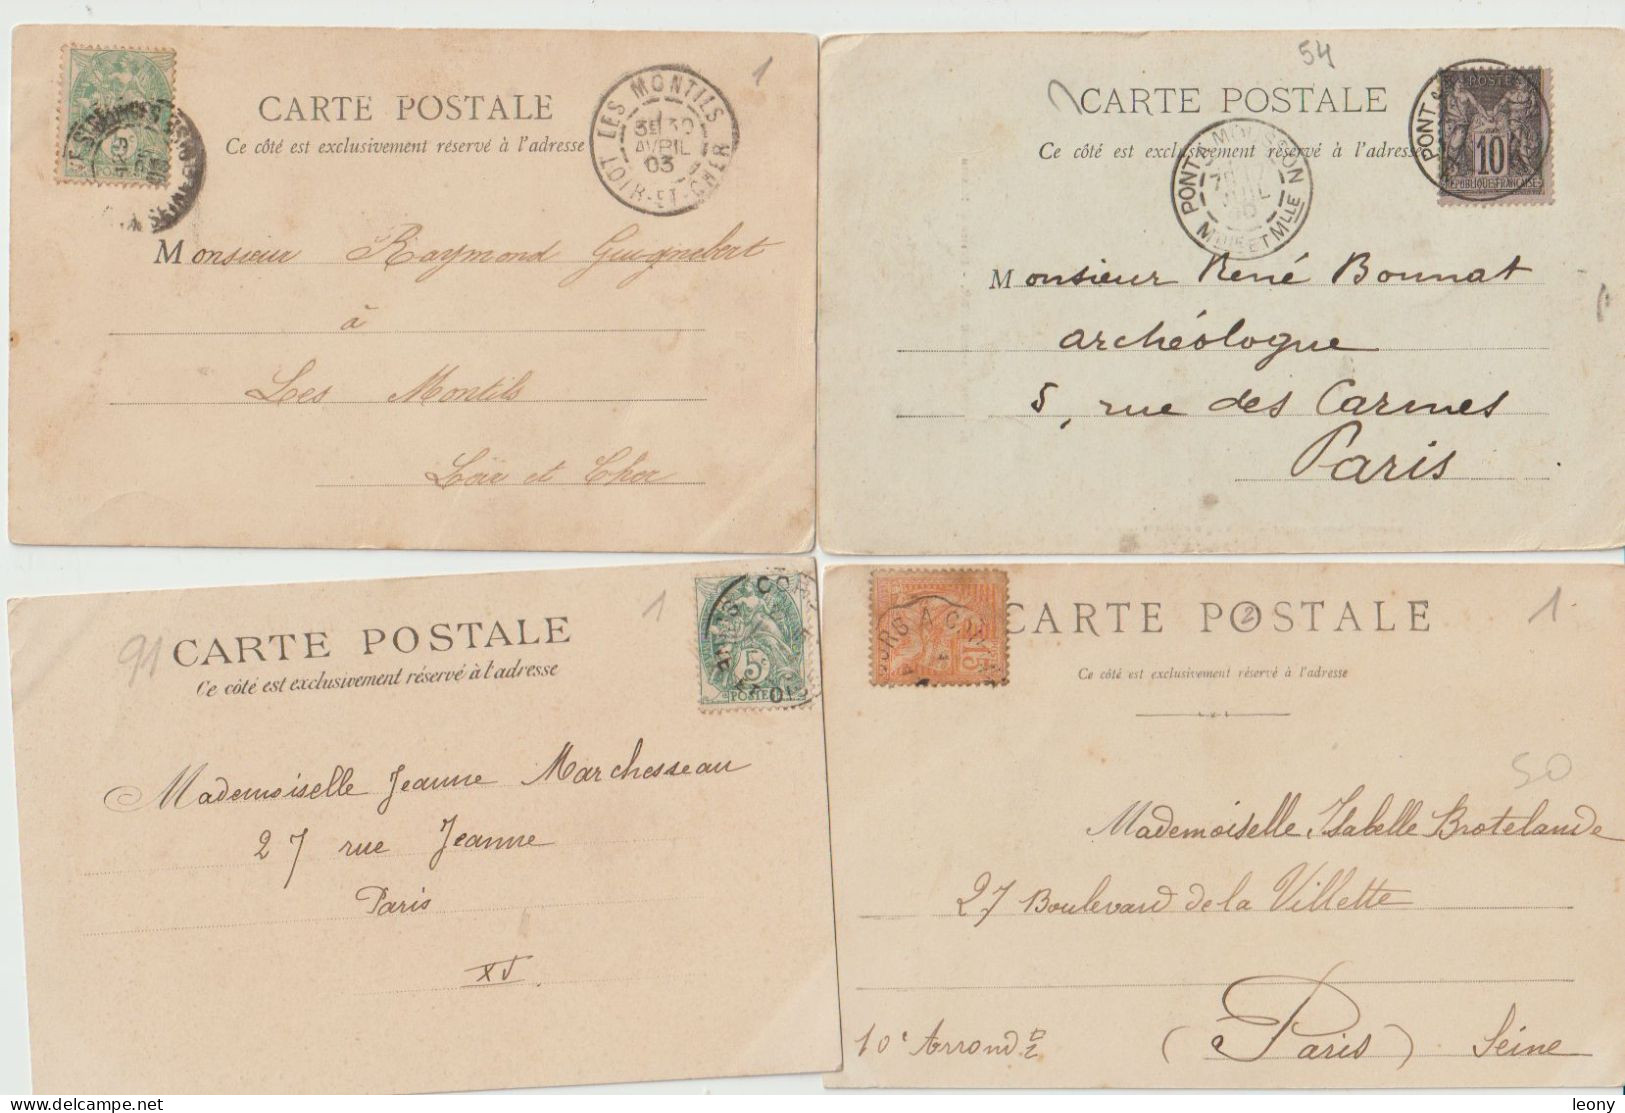 CARTE POSTALE
Ce côté est exclusivement réservé à l'adresse
LES MONTILS
30
AVRIL
03
LOIR-ET-CHER
1
Monsieur Raymond Guignebert
à
Les Montils
Loir et Cher
54
CARTE POSTALE
Ce côté est exclusivement réservé à l'adresse
PONT-A-MOUSSON
MEURTHE ET MLLE
PONT
POSTES
10
REPUBLIQUE FRANÇAISE
Monsieur René Bonnat
archéologue
5, rue des Carmes
Paris
91
1
CARTE POSTALE
Ce côté est exclusivement réservé à l'adresse
5c
POSTES
Mademoiselle Jeanne Marchesseau
27 rue Jeanne
Paris
XV
15
CARTE POSTALE
2
1
Ce côté est exclusivement réservé à l'adresse
50
Mademoiselle Isabelle Brotelande
27 Boulevard de la Villette
10e Arrondt
(Paris) Seine
www.delcampe.net
leony